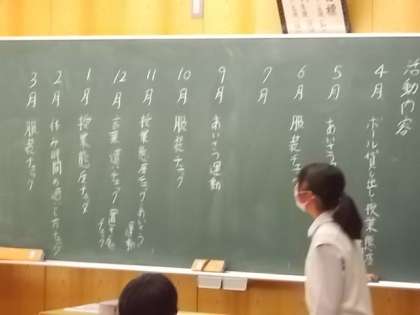 活動内容
4月 ボール貸し出し 授業態度
5月 あいさつ
6月 服装チェ
7月
9月 あいさつ運動
10月 服装チェック
11月 授業態度チェック あいさつ運動
12月 言葉遣いチェック
1月 授業態度チェック
2月 休み時間の過ごし方チェック
3月 服装チェック